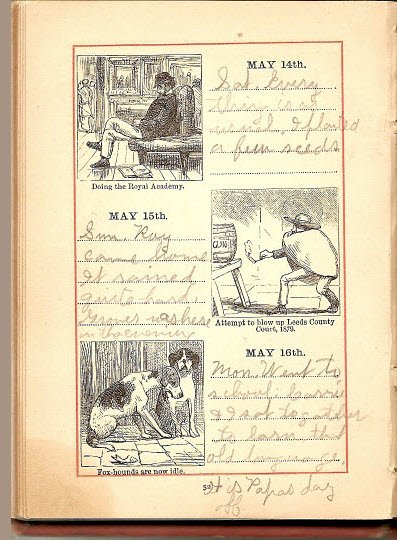 MAY 14th.
Sat. Every
thing is as
usual. I planted
a few seeds
Doing the Royal Academy.
MAY 15th.
Sun. Ray
came home
It rained
quite hard
was here
in the evening
GUN
Attempt to blow up Leeds County
Court, 1879.
MAY 16th.
Mon. Went to
school. Carrie
& I sat together
to learn that
old language
Fox-hounds are now idle.
It is Papa's day
off